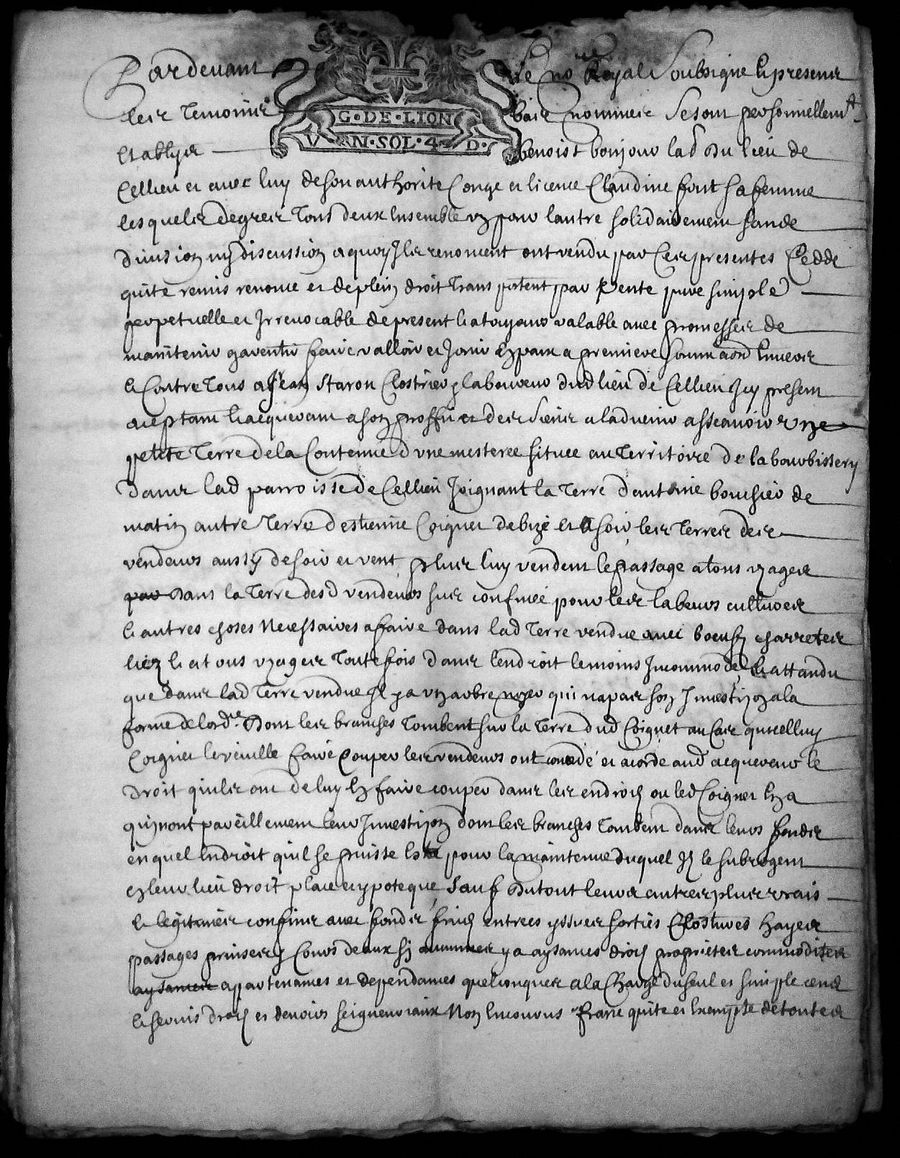 Pardevant le no.re Royal Soubsigné et presents
les Temoins bas nommes Se sont personnellem.t
G·DE·LION
VN·SOL·4·D·
Establyes benoist bonjour lad du lieu de
Cellieu et avec luy de son authorité Conge et licence Claudine font sa femme
lesquels de grer tous deux Ensemble un pour lautre solidairement sans
division ny discussion a quoy ils renoncent ont vendu par ces presentes Cedde
quite remis renoncé et de plein droit transportent par Vente pure simple
perpetuelle et Irrevocable de present et a tousjours valable avec promesses de
maintenir garentir faire valloir et Jouir En paix a premiere sommaon Envers
et Contre tous a Jean Staron Clostrier et laboureur dud lieu de Cellieu Icy present
aceptant et acquerant a son proffit et des siens a ladvenir asscavoir une
petite Terre de la Contenue dune mesteree située au Territoire de la bourbissery
dans lad parroisse de Cellieu Joignant la Terre dantoine bonsieu de
matin autre Terre destienne Coignet de bize et soir les Terres des
vendeurs aussy de soir et vent plus luy vendent le passage a tous usages
par dans la Terre desd vendeurs sus confinée pour les labeurs cultures
et autres choses Necessaires a faire dans lad Terre vendue avec boeufs charretes
liez et a tous usages Toutefois dans lendroit le moins Incommode Et attandu
que dans lad Terre vendue il y a un arbre noyer qui na pas son Investizon a la
forme de lord.e Dont les branches Tombent sur la Terre dud Coignet au Cas quicelluy
Coignet le veuille faire Couper les vendeurs ont concedé et acordé aud acquereur le
Droit quils ont de luy En faire couper dans les endroits ou led Coignet En a
quy nont pareillement leur Investizon dont les branches Tombent dans leurs fonds
en quel Endroit quil se puisse pour la maintenue duquel Ils le subrogent
en leur lieu droit place et ypoteque Sauf du tout leurs autres plus vrais
et legitimes confins avec fonds fruits entrees yssues sorties Clostures hayes
passages prinses Cours deaux sy y a aysances droits proprietes commodites
aysances appartenances et dependances quelconques a la Charge du seul et simple cens
et servis droits et devoirs seigneuriaux Non Encourus Franc quite et Exempte de toutes